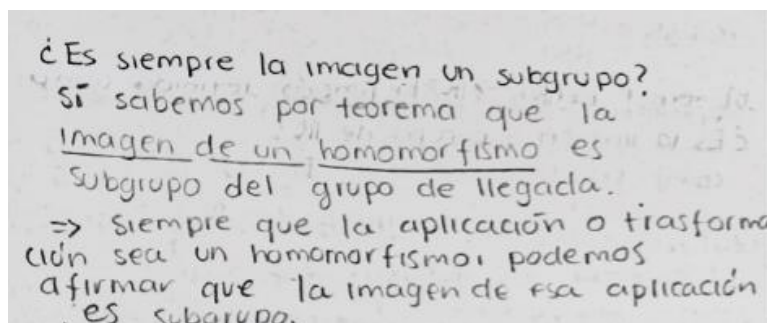 ¿Es siempre la imagen un subgrupo?
Sí sabemos por teorema que la
imagen de un homomorfismo es
subgrupo del grupo de llegada.
=> Siempre que la aplicación o trasforma
ción sea un homomorfismo, podemos
afirmar que la imagen de esa aplicación
es subgrupo.